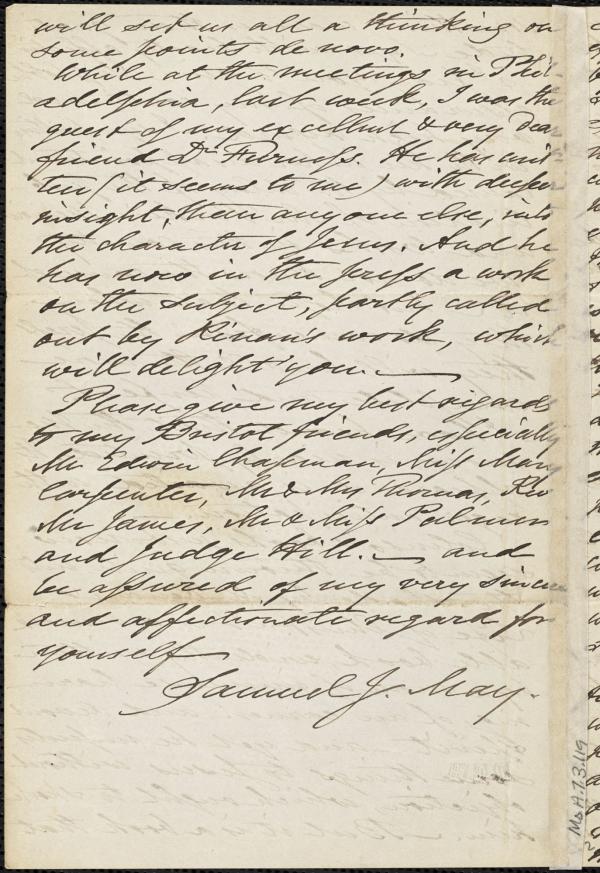 will set us all a thinking on
some points de novo.
While at the meetings in Phil-
adelphia, last week, I was the
guest of my excellent & very dear
friend Dr Furness. He has writ-
ten (it seems to me) with deeper
insight, than any one else, into
the character of Jesus. And he
has now in the press a work
on the subject, partly called
out by Rénan's work, which
will delight you. —
Please give my best regards
to my Bristol friends, especially
Mr Edwin Chapman, Miss Mary
Carpenter, Mr & Mrs Thomas, Rev
Mr James, Mr & Miss Palmer
and Judge Hill. — and
be assured of my very sincere
and affectionate regard for
yourself
Samuel J. May.
Ms A.7.3.119